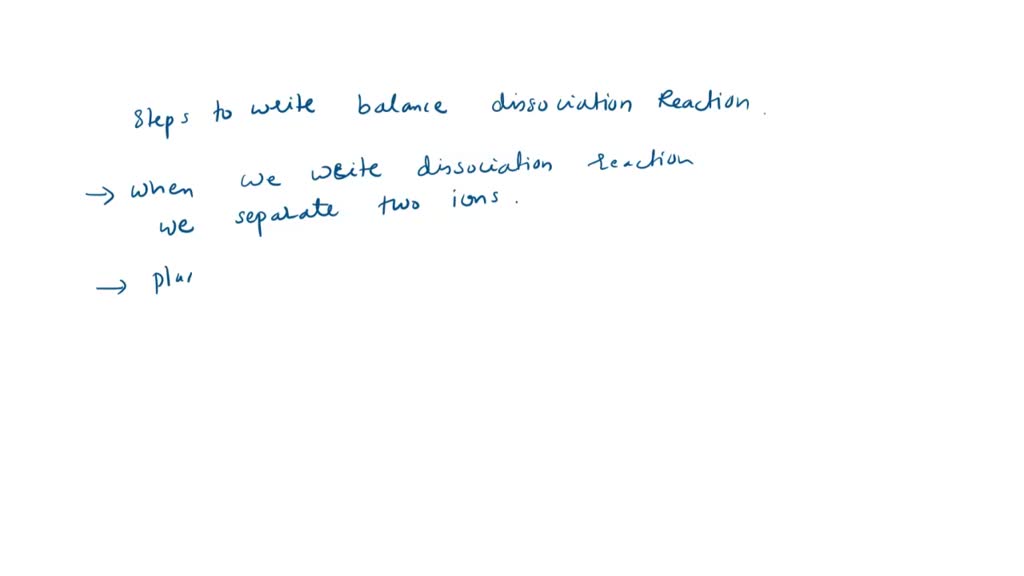 Steps to write balance dissociation Reaction.
→ when we write dissociation reaction
we separate two ions.
→ pla